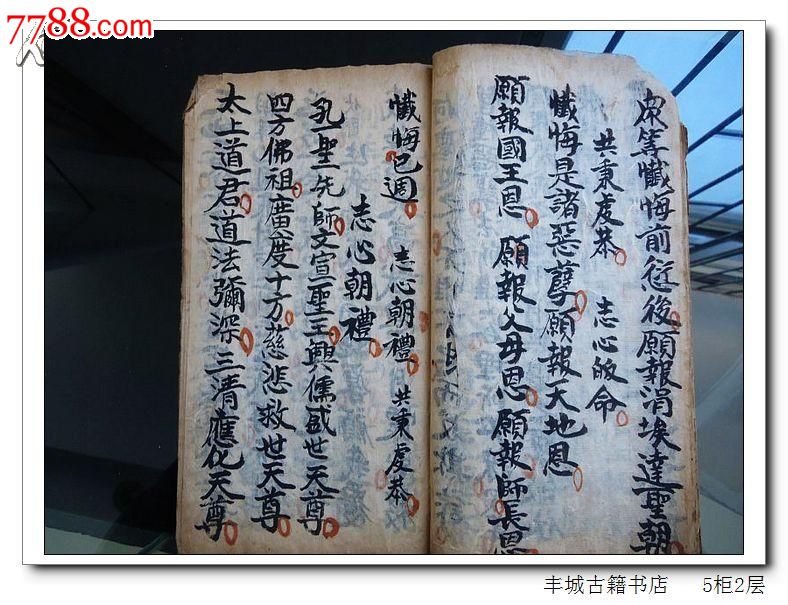 7788.com
众等懺悔前愆後願報涓埃達聖朝
共秉虔恭 志心皈命
懺悔是諸惡孽願報天地恩
願報國王恩 願報父母恩 願報師長恩
懺悔已週 志心朝禮 共秉虔恭
志心朝禮
孔聖先師文宣聖王興儒盛世天尊
四方佛祖廣度十方慈悲救世天尊
太上道君道法彌深三清應化天尊
丰城古籍书店 5柜2层